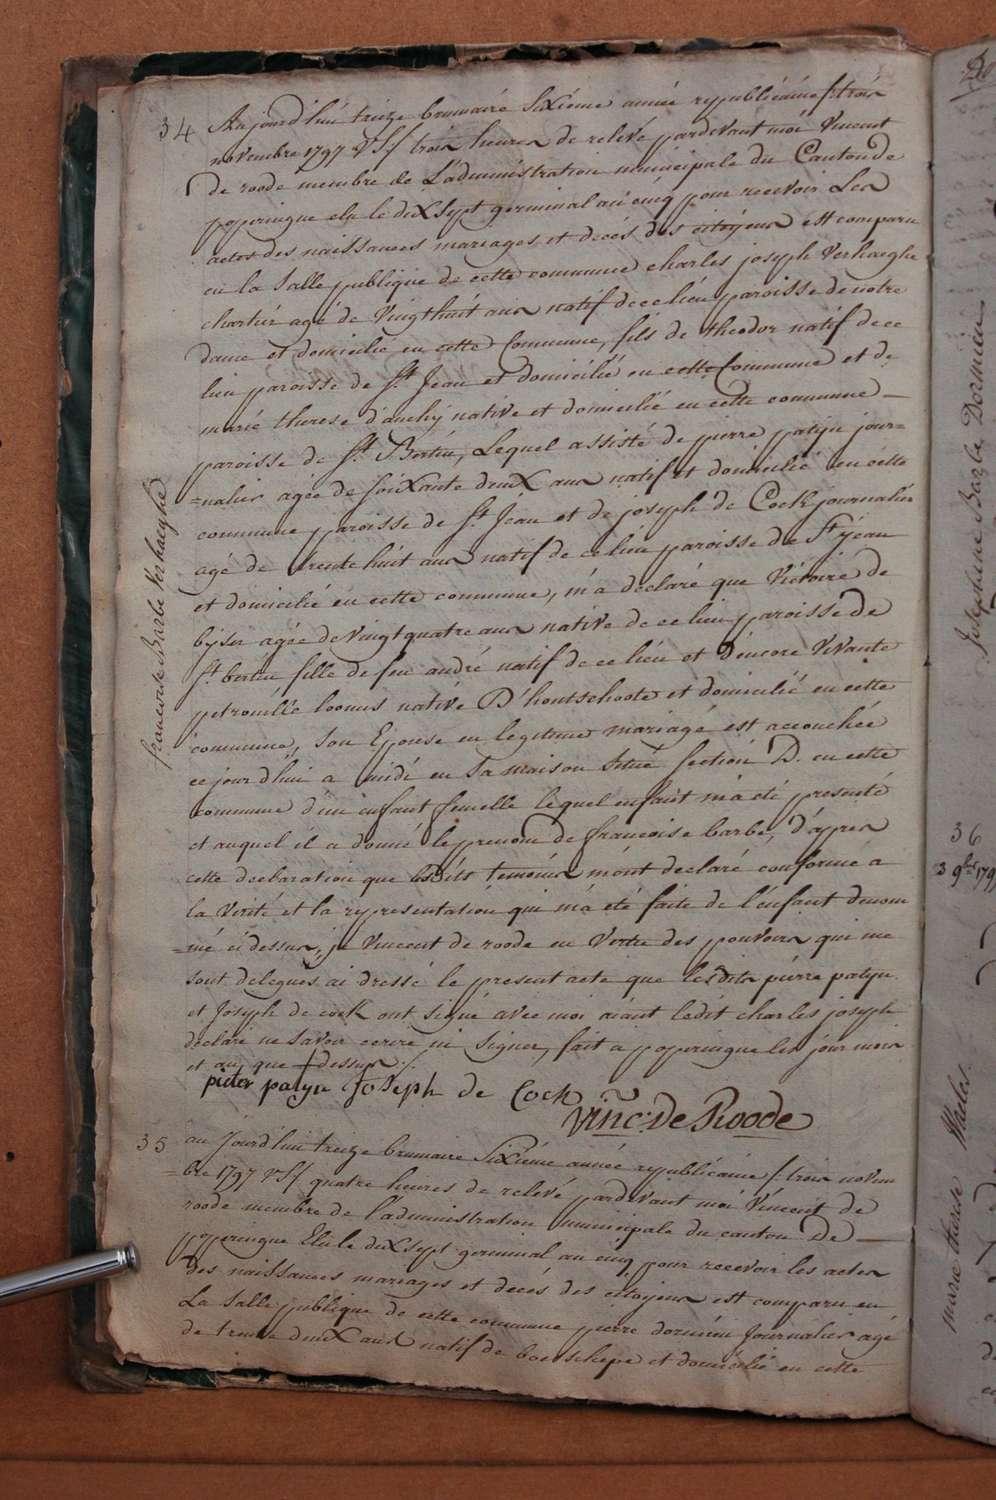 34
Aujourd'hui treize brumaire sixième année républicaine /: trois
novembre 1797 VS / trois heures de relevé pardevant moi Vincent
de roode membre de L'administration municipale du Canton de
poperingue elu le dix sept germinal an cinq pour recevoir Les
actes des naissances mariages et décès des citoyens est comparu
en la salle publique de cette commune charles joseph Verhaeghe
chartier agé de Vingthuit ans natif de ce lieu paroisse de notre
dame et domicilié en cette Commune, fils de theodor natif de ce
lieu paroisse de St. Jean et domicilié en cette Commune et de
marie therese d'auchy native et domicilié en cette commune —
paroisse de St. Bertin, Lequel assisté de pierre patyn jour=
=nalier agée de soixante deux ans natif et domicilié en cette
commune paroisse de St Jean et de joseph de Cock journalier
agé de trente huit ans natif de ce lieu paroisse de St jean
et domicilié en cette commune, m'a declaré que Victoire de
byser agée de vingt quatre ans native de ce lieu paroisse de
St. bertin fille de feu andré natif de ce lieu et d'encore Vivante
petronille loonis native D'hontschoote et domiciliée en cette
commune, son Epouse en legitime mariage est accouchée
ce jour d'hui a midi en sa maison située section D. en cette
commune d'un enfant femelle lequel enfant m'a été presenté
et auquel il a donné le prenom de francoise barbe, d'apres
cette declaration que lesdits temoins m'ont declaré conforme a
la verité et la representation qui m'a été faite de l'enfant denom
=mé ci dessus, je Vincent de roode en Vertu des pouvoirs qui me
sont delegués ai dressé le present acte que lesdits pierre patyn
et Joseph de cock ont signé avec moi aiant ledit charles joseph
declaré ne savoir ecrire ni signer, fait a poperingue les jour mois
et an que dessus /.
pieter patyn Joseph de Cock
Vinc: De Roode
francoise Barbe Verhaeghe
35
au Jourd'hui treize brumaire Sixiéme année republicaine /: trois novem
=bre 1797 VS / quatre heures de relevé pardevant moi Vincent de
roode membre de l'administration municipale du canton De —
poperingue Elu le dix sept germinal an cinq pour recevoir les actes
des naissances mariages et décès des citoyens est comparu en
La salle publique de cette commune pierre dormieu Journalier agé
de trente deux ans natif de boeschepe et domicilié en cette
Josephine Barbe Dormieu
36
3 9bre 179
marie therese Maeles